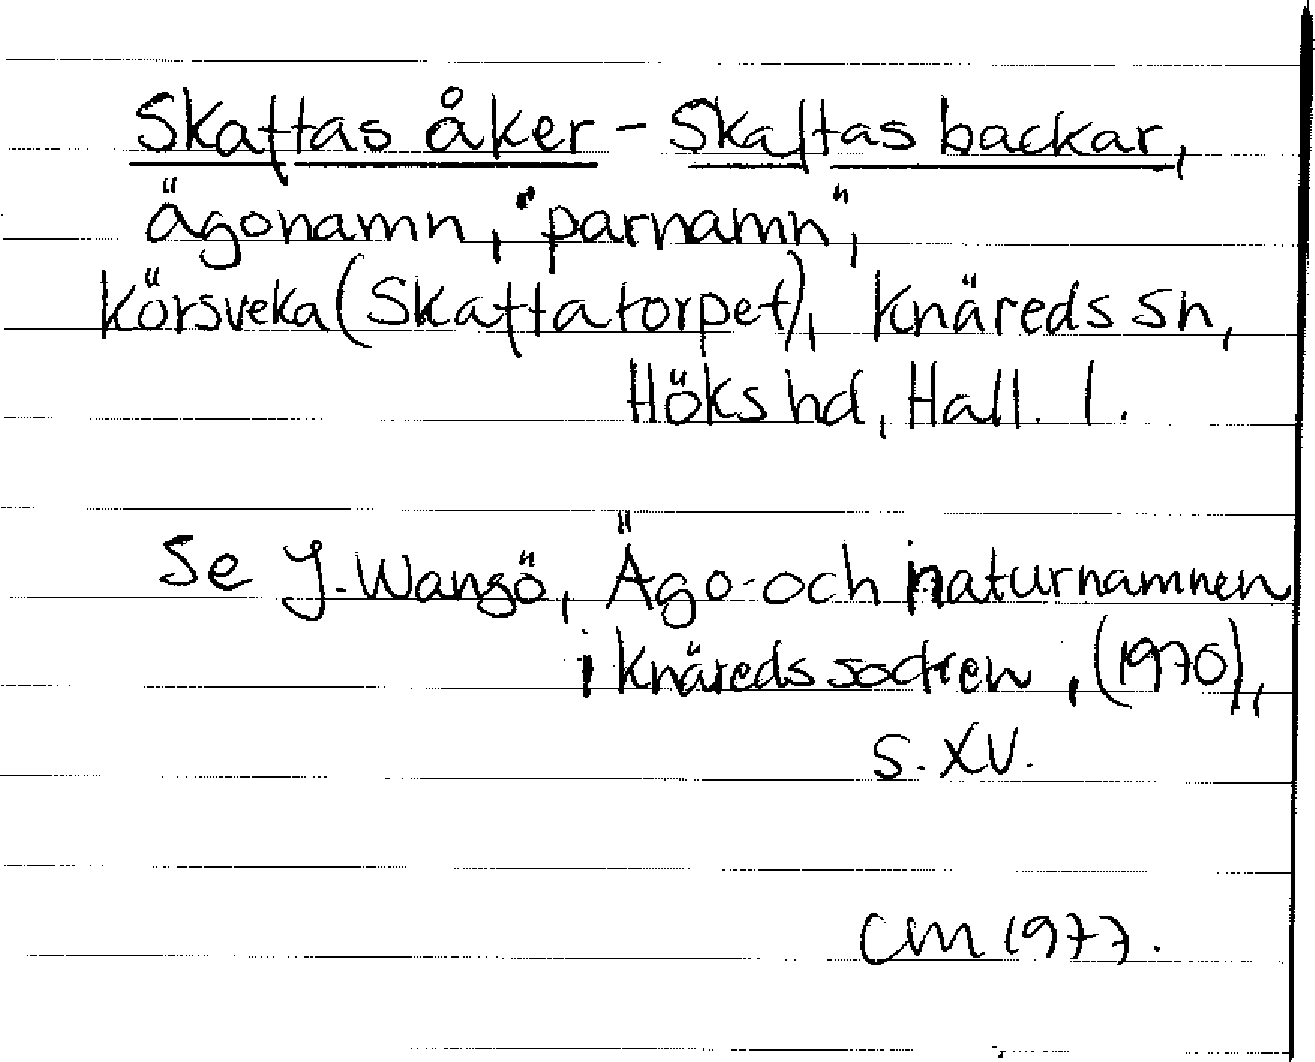 Skaftas åker - Skaftas backar,
ägonamn, "parnamn",
Körsveka (Skaftatorpet), Knäreds sn,
Höks hd, Hall. l.
Se J. Wangö, Ägo- och naturnamnen
i Knäreds socken, (1970),
s. XV.
CM 1977.